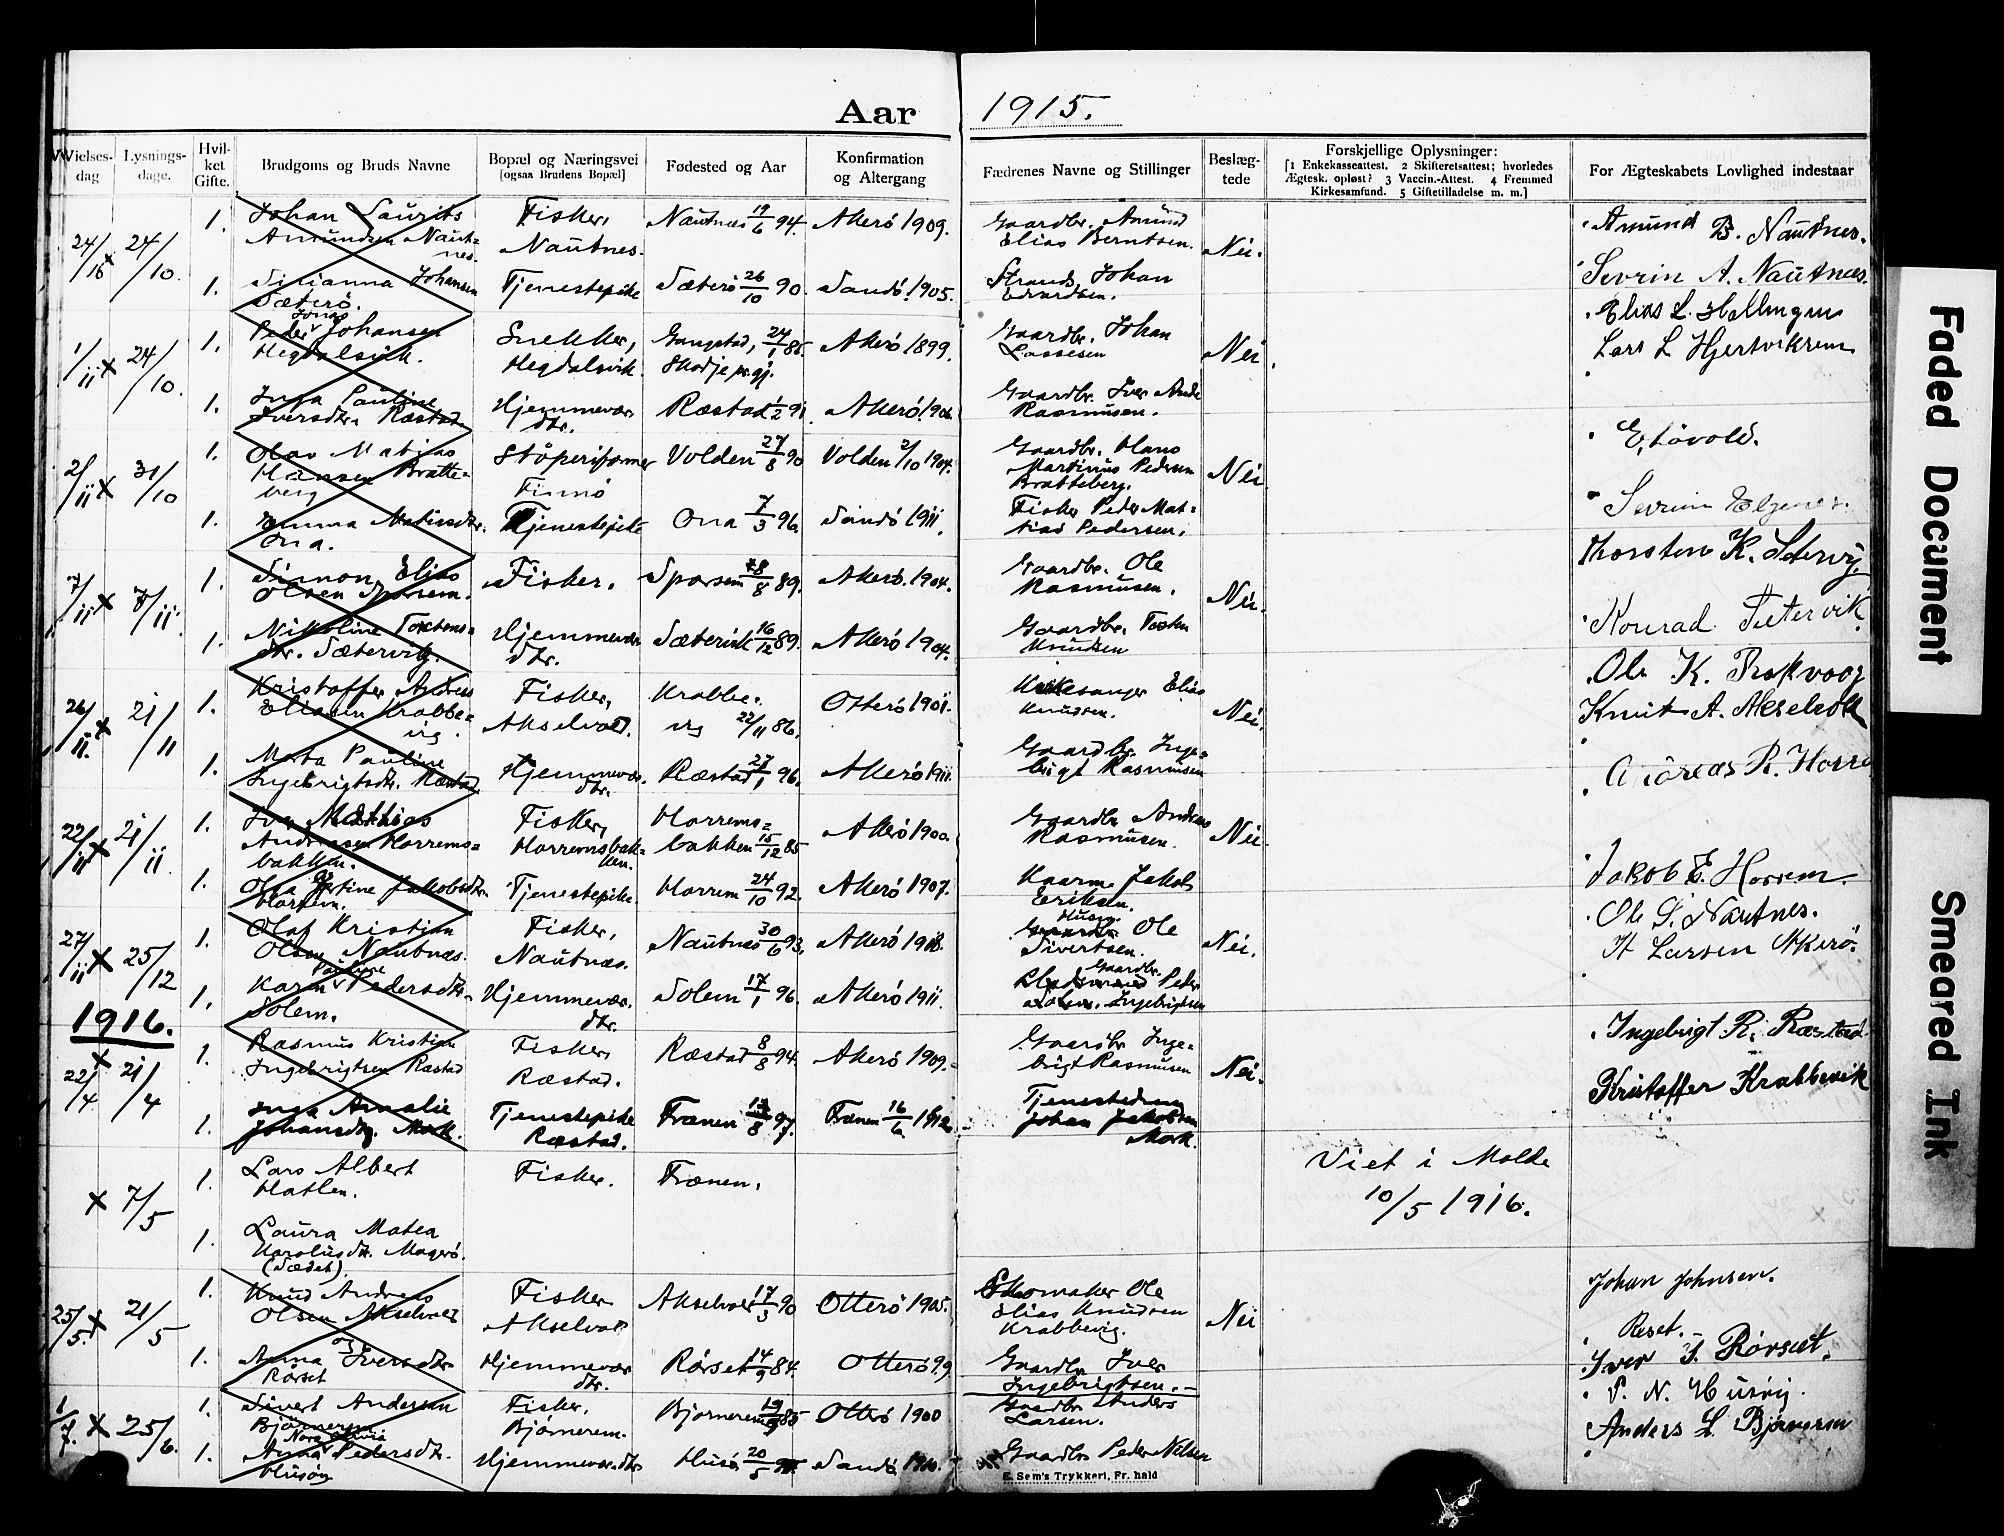 Aar 1915.
Vielses-dag
Lysnings-dage.
Hvil-ket Gifte.
Brudgoms og Bruds Navne
Bopæl og Næringsvei
[ogsaa Brudens Bopæl]
Fødested og Aar
Konfirmation og Altergang
Fædrenes Navne og Stillinger
Beslæg-tede
Forskjellige Oplysninger:
[1 Enkekasseattest. 2 Skifteretsattest; hvorledes Ægtesk. opløst? 3 Vaccin.-Attest. 4 Fremmed Kirkesamfund. 5 Giftetilladelse m. m.]
For Ægteskabets Lovlighed indestaar
24/10 1. Johan Laurits Amundsen Nautnes. Fisker, Nautnes. Nautnes 19/6 94. Akerø 1909. Gaardbr. Amund Elias Berntsen. Nei. Amund B. Nautnes.
1. Johansen Sæterø. Tjenestepike Sæterø 26/10 90. Sandø 1905. Strands. Johan Edvardsen. Sevrin A. Nautnes.
1/11 x 24/10. 1. Peder Jonas Johansen Hegdalsvik. Snekker, Hegdalsvik. Gangstad, Skodje pr.gj. Akerø 1899. Gaardbr. Johan Lassesen Nei. Elias L. Hellingen
Lars L Hjertvikrem
1. Inga Pauline Iversdtr. Ræstad. Hjemmevær. dtr. Ræstad 1/2 91. Akerø 1906. Gaardbr. Iver Ande Rasmusen.
2/11 x 31/10 1. Olav Matias Hansen Bratteberg Støperiformer Finnø Volden 27/8 90 Volden 2/10 1904. Gaardbr. Hans Martinus Pedersen Bratteberg. Nei. E. Løvold.
1. Emma Matiasdtr. Ona. Tjenestepike Ona 7/3 96. Sandø 1911. Fisker Peder Mattias Pedersen. Sevrin
7/11 x 7/11. 1. Simon Elias Olsen Sporsem. Fisker. Sporsem 8/8 89. Akerø. 1904. Gaardbr. Ole Rasmusen. Nei. Thorsten K.
1. Nikoline Tostensdtr. Sætervik. Hjemmevær. dtr. Sætervik 16/12 89. Akerø 1904. Gaardbr. Tosten Knudsen Konrad
26/11. x 21/11 1. Kristoffer Andreas Eliasen Krabbevig. Fisker, Akselvold. Krabbevig 22/11 86. Otterø 1901. Kirkesanger Elias Knudsen. Nei. Ole K.
Knut A. Akselvoll
1. Marta Pauline Ingebrigtsdtr. Ræstad. Hjemmevær. dtr. Ræstad 27/1 96. Akerø 1911. Gaardbr. Ingebrigt Rasmusen Andreas R. Horre
22/11 x 21/11. 1. Iver Mathias Andreassen Horremsbakken. Fisker, Horremsbakken. Horremsbakken 15/12 85 Akerø 1900. Gaardbr. Andreas Rasmusen. Nei.
1. Olga Jakobsdtr. Horrem. Tjenestepike Horrem 24/10 92. Akerø 1907. Kaarm. Jakob Eriksen. Jakob E. Horrem.
27/11 x 25/12 1. Olaf Kristian Olsen Nautnæs. Fisker, Nautnæs. Nautnæs 30/6 93. Akerø 1908. Husm. Ole Sivertsen. Nei. Ole S. Nautnes.
H Larsen Akerø.
1. Karn Pauline Pedersdtr. Solem. Hjemmevær. dtr. Solem 17/1 96. Akerø 1911. Gaardbr. Peder Ingebrigtsen
1916.
22/4 x 21/4 1. Rasmus Kristian Ingebrigtsen Ræstad Fisker, Ræstad. Ræstad 8/8 94. Akerø 1909. Gaardbr. Ingebrigt Rasmusen Nei. Ingebrigt R. Ræstad
1. Inga Amalie Johansdtr. Mork. Tjenestepike Ræstad. Frænen 97. Frænen 16/6 1912. Johan Jakobsen Mork. Kristoffer Krabbevik
x 7/5 1. Lars Albert Hatlen. Fisker. Frænen. Viet i Molde 10/5 1916.
1. Laura Matea Karolusdtr. Magerø. (Sædet)
25/5. x 21/5 1. Knud Andreas Olsen Akselvold Fisker Akselvold Akselvoll 17/3 90 Otterø 1905. Skomaker Ole Elias Knudsen Krabbevig. Nei Johan Johnsen.
Reset.
1. Anna Iversdtr. Rørset Hjemmevær dtr. Rørset 14/9 84. Otterø 99 Gaardbr. Iver Ingebrigtsen. Iver I. Rørset.
1/7. x 25/6. 1. Sivert Andersen Bjørnerem Fisker, Bjørnerem. Bjørnerem 85 Otterø 1900 Gaardbr. Anders Larsen. P. N. Husøy.
1. Anna Nora Olivia Pedersdtr. Husøy Hjemmevær. dtr. Husø 20/5 Sandø 1910. Gaardbr. Peder Nilsen Anders L. Bjørnerem
E. Sem's Trykkeri, Fr. hald
Faded Document
Smeared Ink